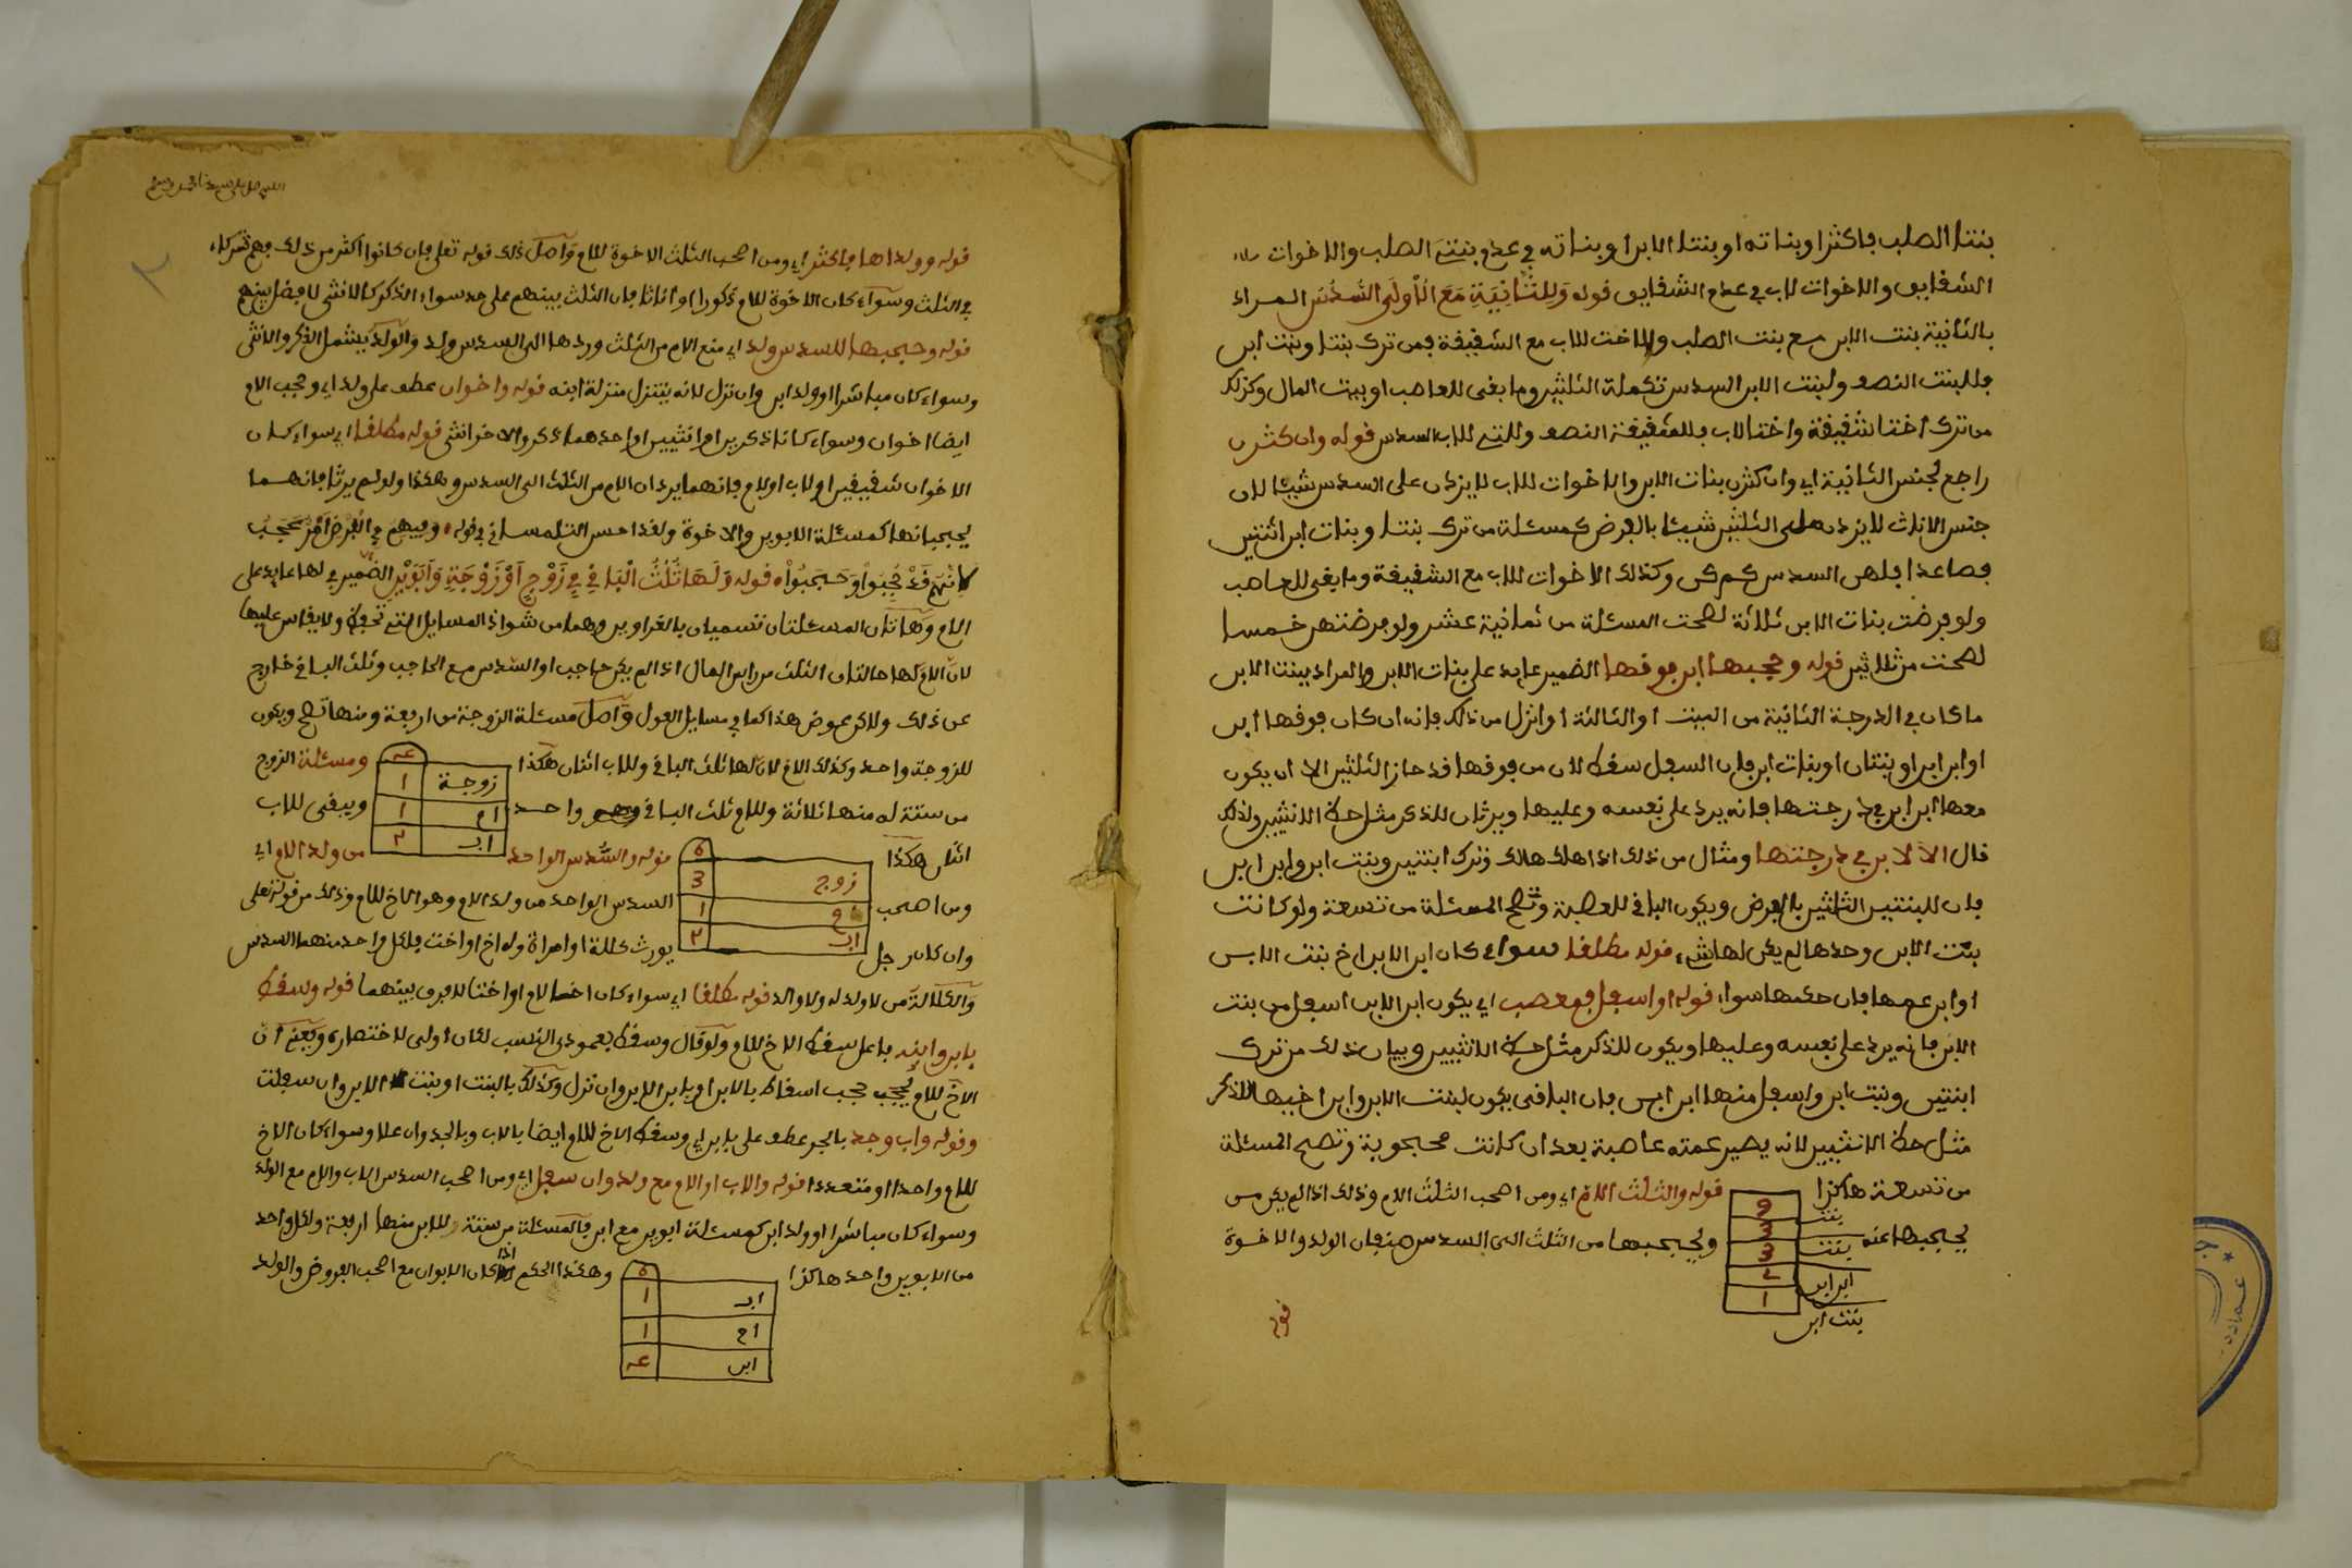 بنتا الصلب فاكثر او بناته او بنتا الابن او بناته في عدم بنتي الصلب والاخوات
الشقايق والاخوات لاب في عدم الشقايق قوله وَلِلثَّانِيَةِ مَعَ الْأُولَى السُّدُسُ المراد
بالثانية بنت الابن مع بنت الصلب والاخت للاب مع الشقيقة فمن ترك بنتا وبنت ابن
فللبنت النصف ولبنت الابن السدس تكملة الثلثين وما بقى للعاصب او بيت المال وكذلك
من ترك اختا شقيقة واختا لاب فللشقيقة النصف وللتي للاب السدس قوله وان كثرن
راجع لجنس الثانية اي وان كثرن بنات الابن والاخوات للاب لا يزدن على السدس شيئا لان
جنس الاناث لا يزدن على الثلثين شيئا بالفرض كمسئلة من ترك بنتا وبنات ابن اثنتين
فصاعدا فلهن السدس كم كن وكذلك الاخوات للاب مع الشقيقة وما بقى للعاصب
ولو فرضت بنات الابن ثلاثة لصحت المسئلة من ثمانية عشر ولو فرضتهن خمسا
لصحت من ثلاثين قوله وحجبها ابن فوقها الضمير عايد على بنات الابن والمراد ببنت الابن
ما كان في الدرجة الثانية من البنت او الثالثة او انزل من ذلك فانه ان كان فوقها ابن
او ابن ابن او بنتان او بنات ابن فان السفل سقط لان من فوقها قد حاز الثلثين الا ان يكون
معها ابن ابن في درجتها فانه يرد على نفسه وعليها ويرثان للذكر مثل حظ الانثيين ولذلك
قال الا لابن في درجتها ومثال من ذلك اذا هلك هالك وترك ابنتين وبنت ابن وابن ابن
فان للبنتين الثلثين بالفرض ويكون الباقي للعصبة وتصح المسئلة من تسعة ولو كانت
بنت الابن وحدها لم يكن لها شيء قوله مطلقا سواء كان ابن الابن اخ بنت الابن
او ابن عمها فان حكمها سواء قوله او اسفل فمعصب اي يكون ابن الابن اسفل من بنت
الابن فانه يرد على نفسه وعليها ويكون للذكر مثل حظ الانثيين وبيان ذلك من ترك
ابنتين وبنت ابن واسفل منها ابن ابن فان الباقى يكون لبنت الابن وابن اخيها للذكر
مثل حظ الانثيين لانه يصير عمته عاصبة بعد ان كانت محجوبة وتصح المسئلة
من تسعة هاكذا قوله والثلث الام اي ومن اصحب الثلث الام وذلك اذا لم يكن من
يحجبها عنه ويحجبها من الثلث الى السدس صنفان الولد والاخوة
9
بنت 3
بنت 3
ابن ابن 2
بنت ابن 1
قوله
اللهم صل على سيدنا محمد وسلم
قوله وولداها فاكثر اي ومن اصحب الثلث الاخوة للام واصل ذلك قوله تعلى فان كانوا اكثر من ذلك فهم شركاء
في الثلث وسواء كان الاخوة للام ذكورا او اناثا فان الثلث بينهم على حد سواء الذكر كالانثى لا فضل بينهم
قوله وحجبها للسدس ولد اي منع الام من الثلث وردها الى السدس ولد والولد يشمل الذكر والانثى
وسواء كان مباشرا او ولد ابن وان نزل لانه يتنزل منزلة ابنه قوله واخوان عطف على ولد اي وحجب الام
ايضا اخوان وسواء كانا ذكرين او انثيين او احدهما ذكر والاخر انثى قوله مطلقا اي سواء كان
الاخوان شقيقين او لاب او لام فانهما يردان الام من الثلث الى السدس وهكذا ولو لم يرثا فانهما
يحجبانها كمسئلة الابوين والاخوة ولقد احسن التلمساني في قوله وفيهم في الفرض امر عجب
لانهم قد حجبوا وحجبوا قوله وَلَهَا ثُلُثُ الْبَاقِي فِي زَوْجٍ أَوْ زَوْجَةٍ وَأَبَوَيْنِ الضمير في لها عايد على
الام وهاتان المسئلتان تسميان بالغراوين وهما من شواذ المسايل التي تحفظ ولا يقاس عليها
لان الام لها حالتان الثلث من راس المال اذا لم يكن حاجب او السدس مع الحاجب وثلث الباقي خارج
عن ذلك ولاكن عوض هذا كما في مسايل العول واصل مسئلة الزوجة من اربعة ومنها تصح ويكون
للزوجة واحد وكذلك الام لان لها ثلث الباقي وللاب اثنان هكذا ومسئلة الزوج
من ستة له منها ثلاثة وللام ثلث الباقي وهو واحد ويبقى للاب
زوجة 1
ام 1
اب 2
اثنان هكذا قوله والسدس الواحد من ولد الام اي
ومن اصحب السدس الواحد من ولد الام وهو الاخ للام وذلك من قوله تعلى
وان كان رجل يورث كللة او امراة وله اخ او اخت فلكل واحد منهما السدس
زوج 3
ام 1
اب 2
والكلالة من لا ولد له ولا والد قوله مطلقا اي سواء كان اخا لام او اختا لا فرق بينهما قوله وسقط
بابن وابنه فاعل سقط الاخ للام ولو قال وسقط بعمودي النسب لكان اولى لاختصاره ويعني ان
الاخ للام يحجب حجب اسقاط بالابن او بابن الابن وان نزل وكذلك بالبنت او بنت الابن وان سفلت
وقوله واب وجد بالجر عطف على بابن اي وسقط الاخ للام ايضا بالاب وبالجد وان علا وسواء كان الاخ
للام واحدا او متعددا قوله والاب او الام مع ولد وان سفل اي ومن اصحب السدس الاب والام مع الولد
وسواء كان مباشرا او ولد ابن كمسئلة ابوين مع ابن فالمسئلة من ستة للابن منها اربعة ولكل واحد
من الابوين واحد هاكذا وهكذا الحكم اذا كان الابوان مع اصحب الفروض والولد
اب 1
ام 1
ابن